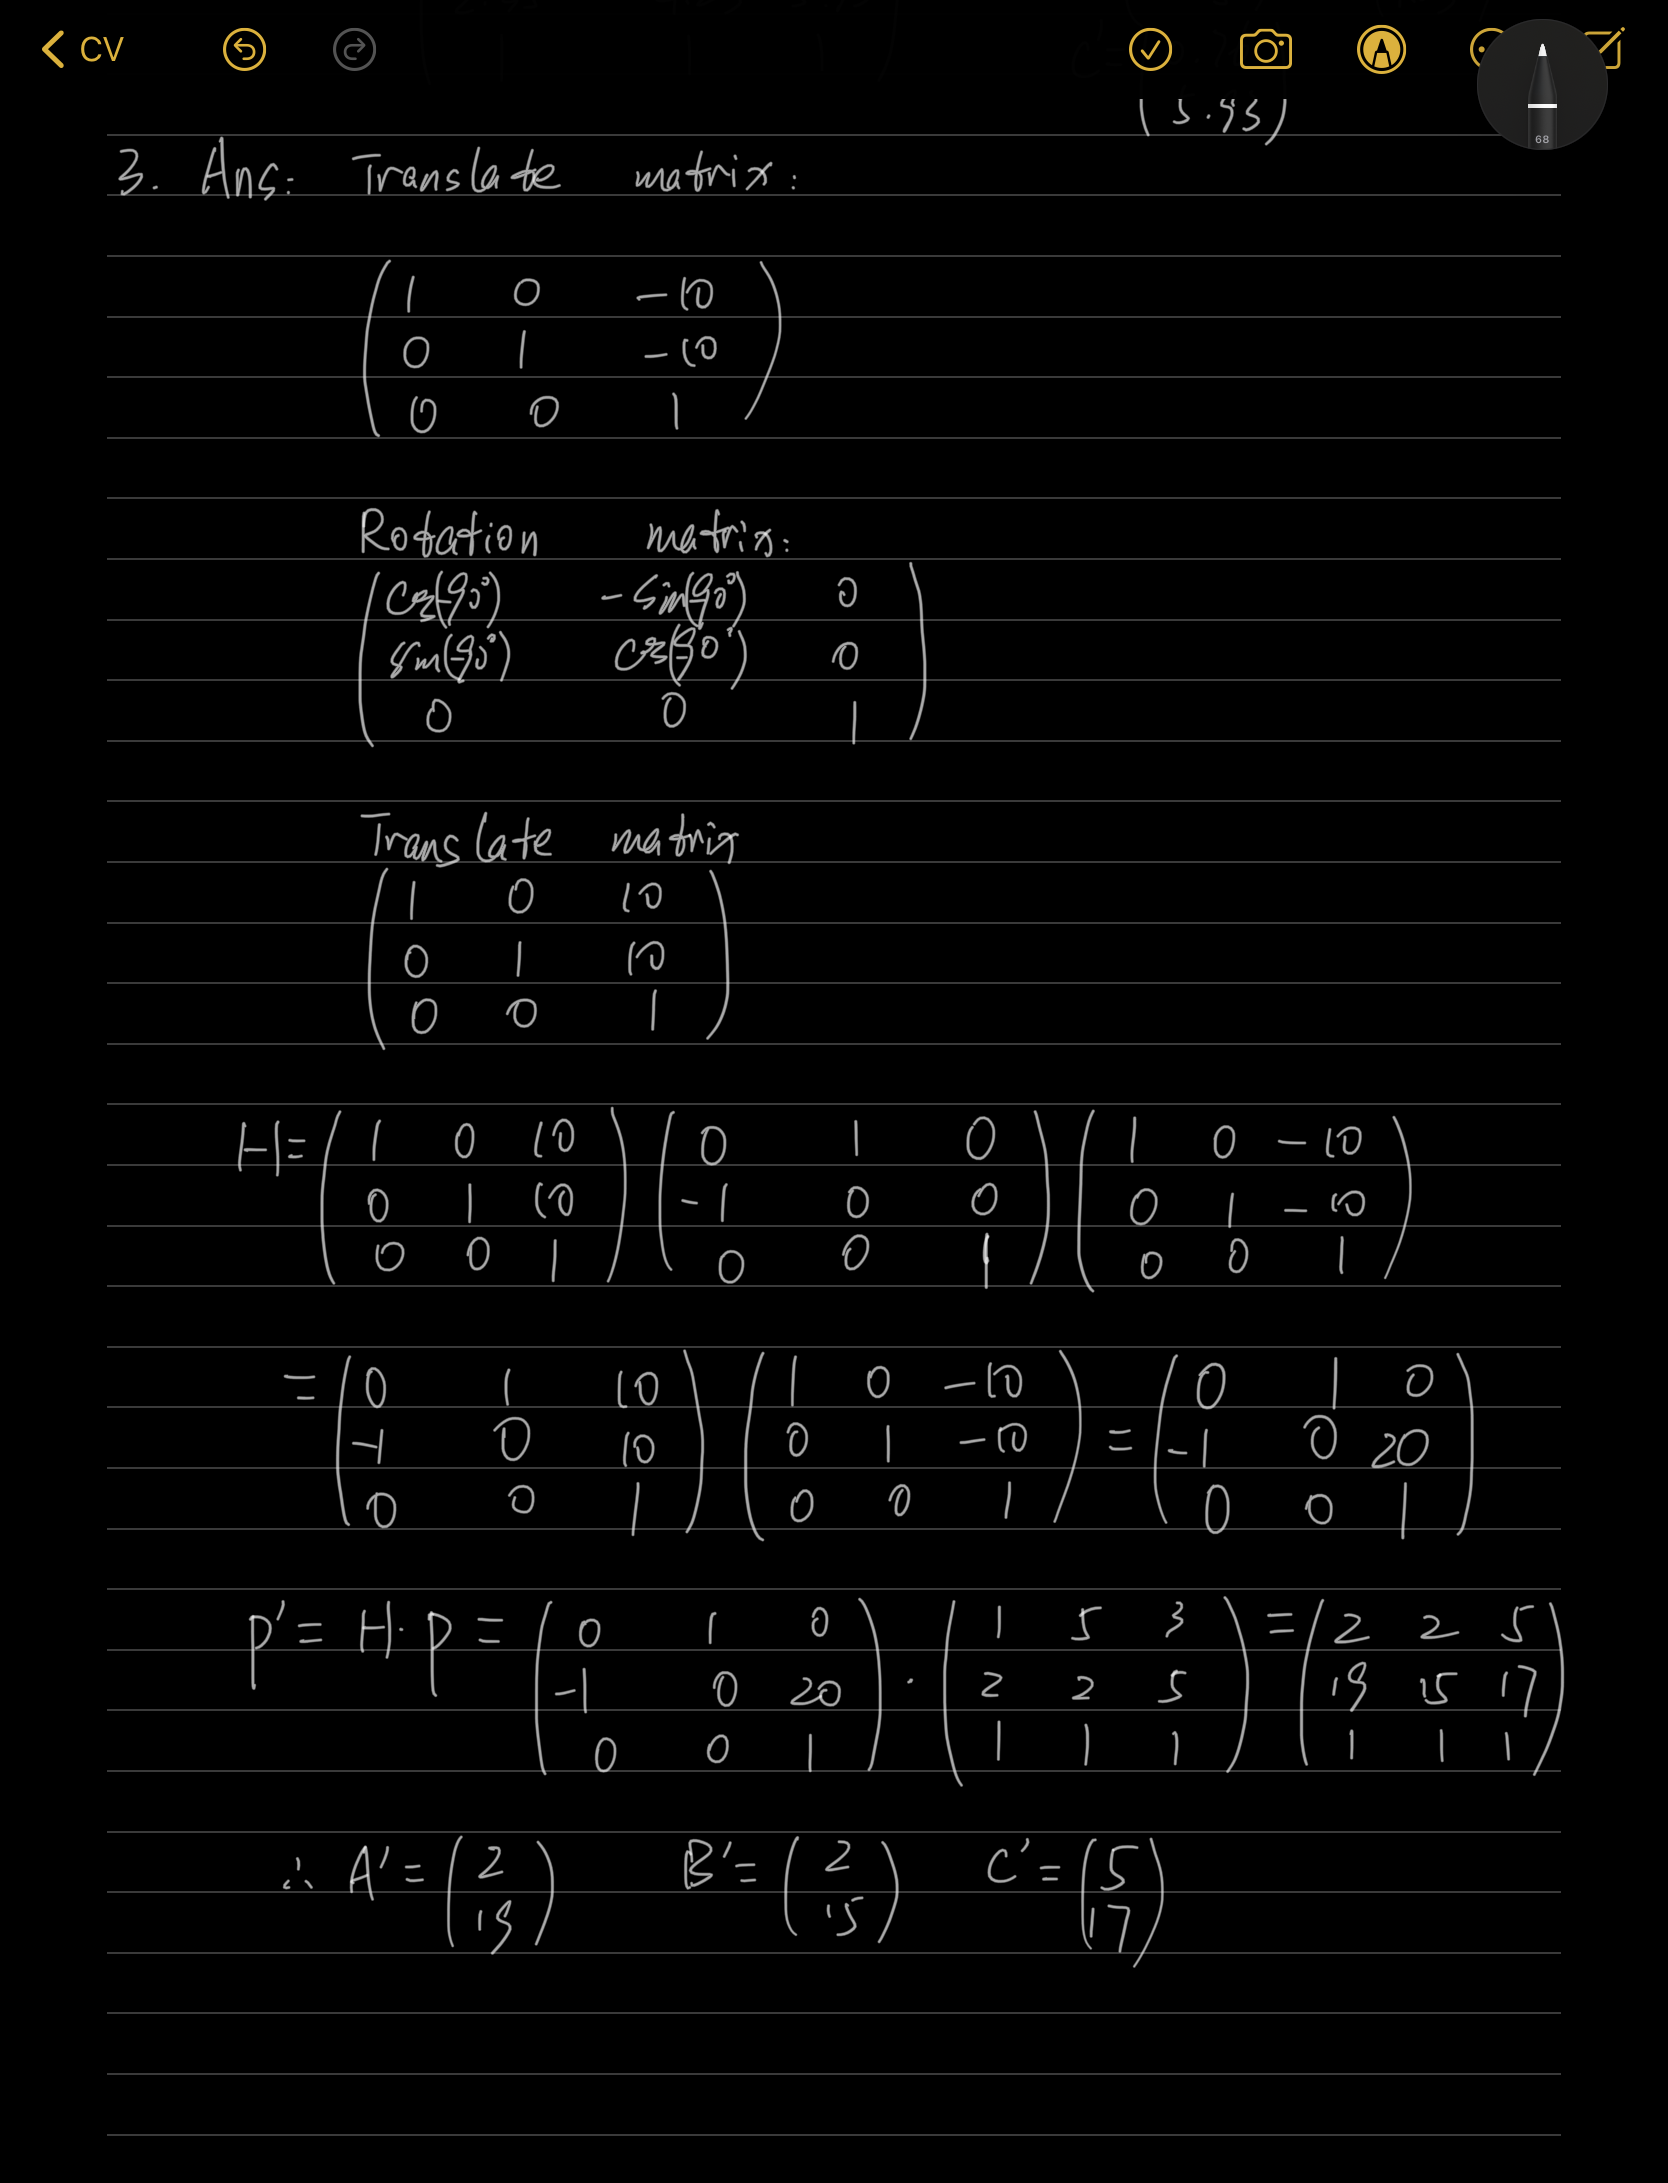 CV
(5.95)
3. Ans: Translate matrix:
( 1 0 -10
0 1 -10
0 0 1 )
Rotation matrix:
( cos(-90°) -sin(-90°) 0
sin(-90°) cos(-90°) 0
0 0 1 )
Translate matrix
( 1 0 10
0 1 10
0 0 1 )
H= ( 1 0 10 ) ( 0 1 0 ) ( 1 0 -10 )
0 1 10 -1 0 0 0 1 -10
0 0 1 0 0 1 0 0 1
= ( 0 1 10 ) ( 1 0 -10 ) = ( 0 1 0 )
-1 0 10 0 1 -10 -1 0 20
0 0 1 0 0 1 0 0 1
p'= H·p = ( 0 1 0 ) · ( 1 5 3 ) = ( 2 2 5 )
-1 0 20 2 2 5 19 15 17
0 0 1 1 1 1 1 1 1
∴ A'= ( 2 ) B'= ( 2 ) C'= ( 5 )
19 15 17
68